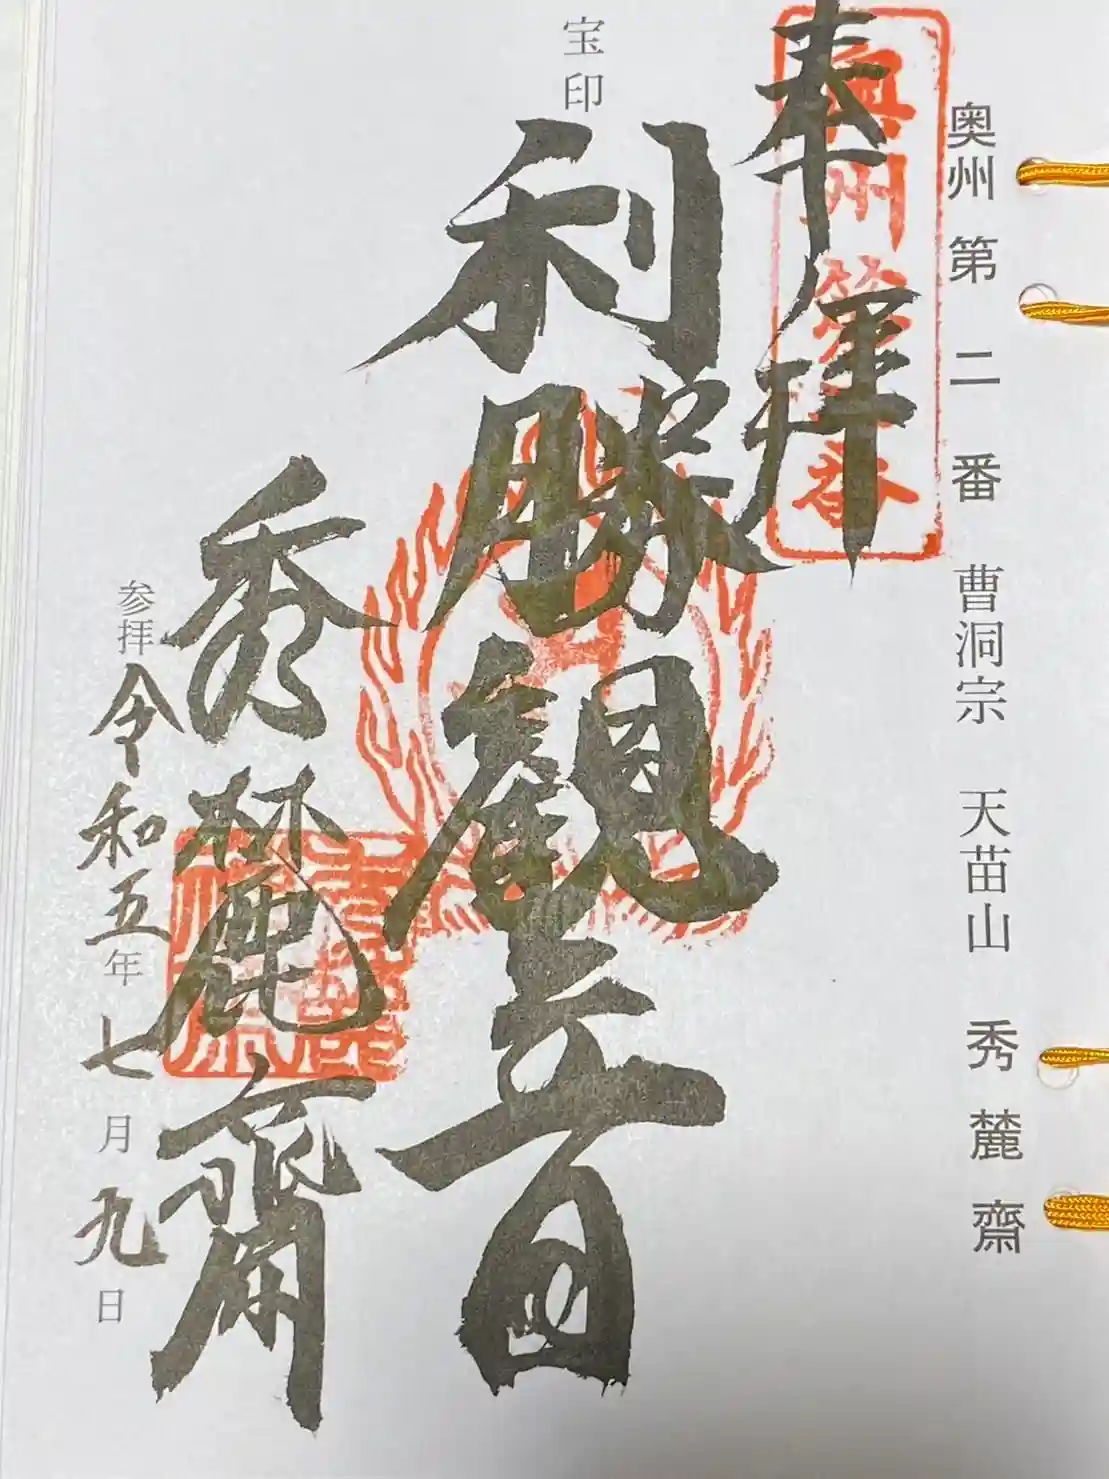 奥州第二番 曹洞宗 天苗山 秀麓齋
奉拝
奥州第二番
宝印
利勝観音
秀麓齋
参拝 令和五年七月九日